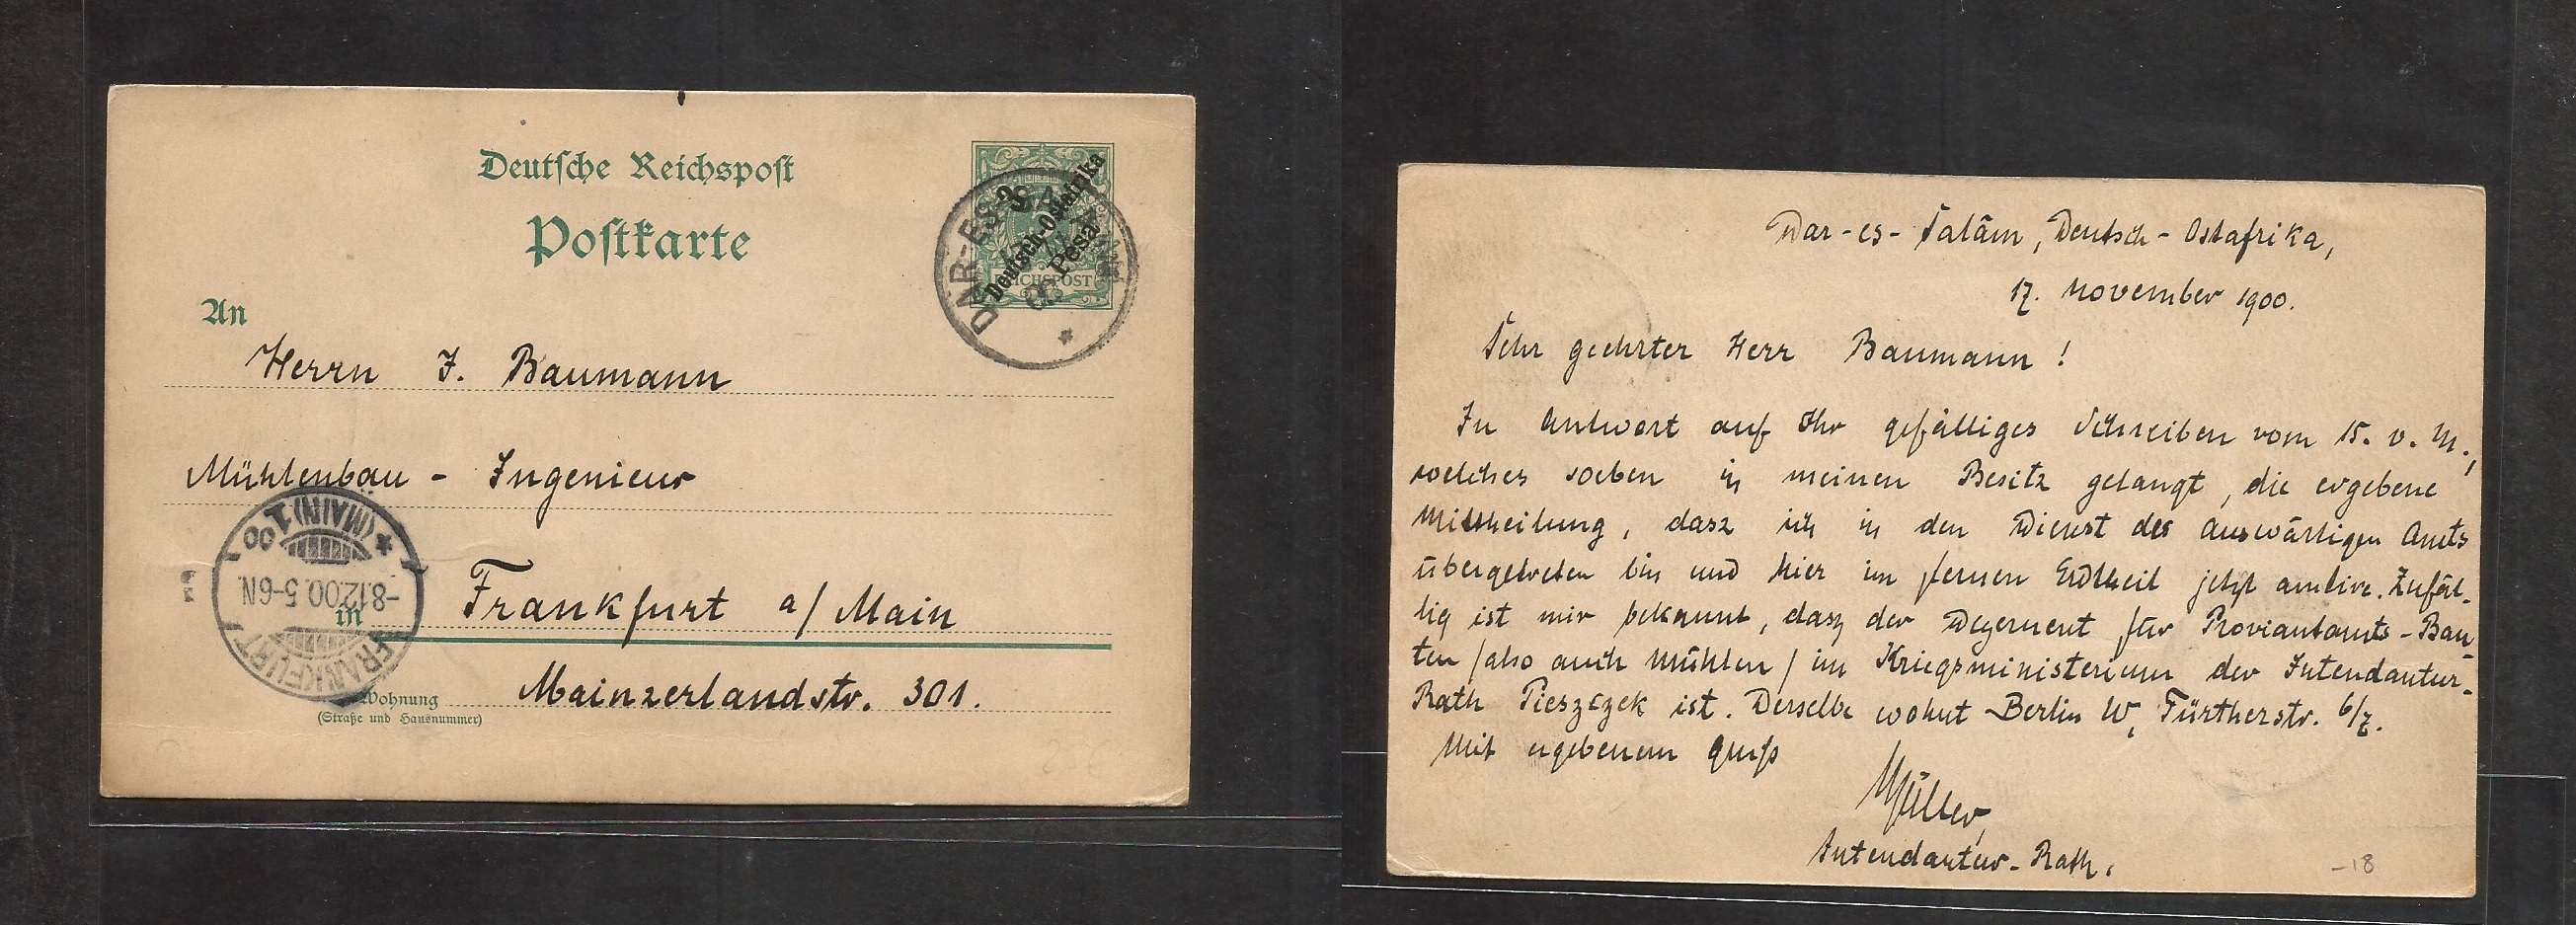 Deutsche Reichspost
Postkarte
3
Deutsch-Ostafrika
Pesa
REICHSPOST
DAR-ES-SALAAM
An
Herrn J. Baumann
Mühlenbau - Ingenieur
FRANKFURT (MAIN) 1
-8.12.00.5-6N.
in Frankfurt a/ Main
Wohnung
(Straße und Hausnummer)
Mainzerlandstr. 301.
Dar-es-Salâm, Deutsch-Ostafrika,
17. November 1900.
Sehr geehrter Herr Baumann!
In Antwort auf Ihr gefälliges Schreiben vom 15. v. M.,
welches soeben in meinen Besitz gelangt, die ergebene
Mittheilung, dasz ich in den Dienst des Auswärtigen Amts
übergetreten bin und hier im fernen Erdtheil jetzt amtire. Zufäl-
lig ist mir bekannt, dasz der Dezernent für Proviantamts-Bau-
ten /also auch Mühlen/ im Kriegsministerium der Intendantur-
Rath Pieszczek ist. Derselbe wohnt Berlin W, Fürtherstr. 6/7.
Mit ergebenem Gruß
Müller,
Intendantur-Rath.
-18